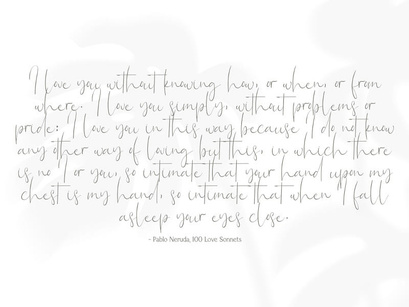 I love you without knowing how, or when, or from
where. I love you simply, without problems or
pride: I love you in this way because I do not know
any other way of loving but this, in which there
is no I or you, so intimate that your hand upon my
chest is my hand, so intimate that when I fall
asleep your eyes close.
- Pablo Neruda, 100 Love Sonnets